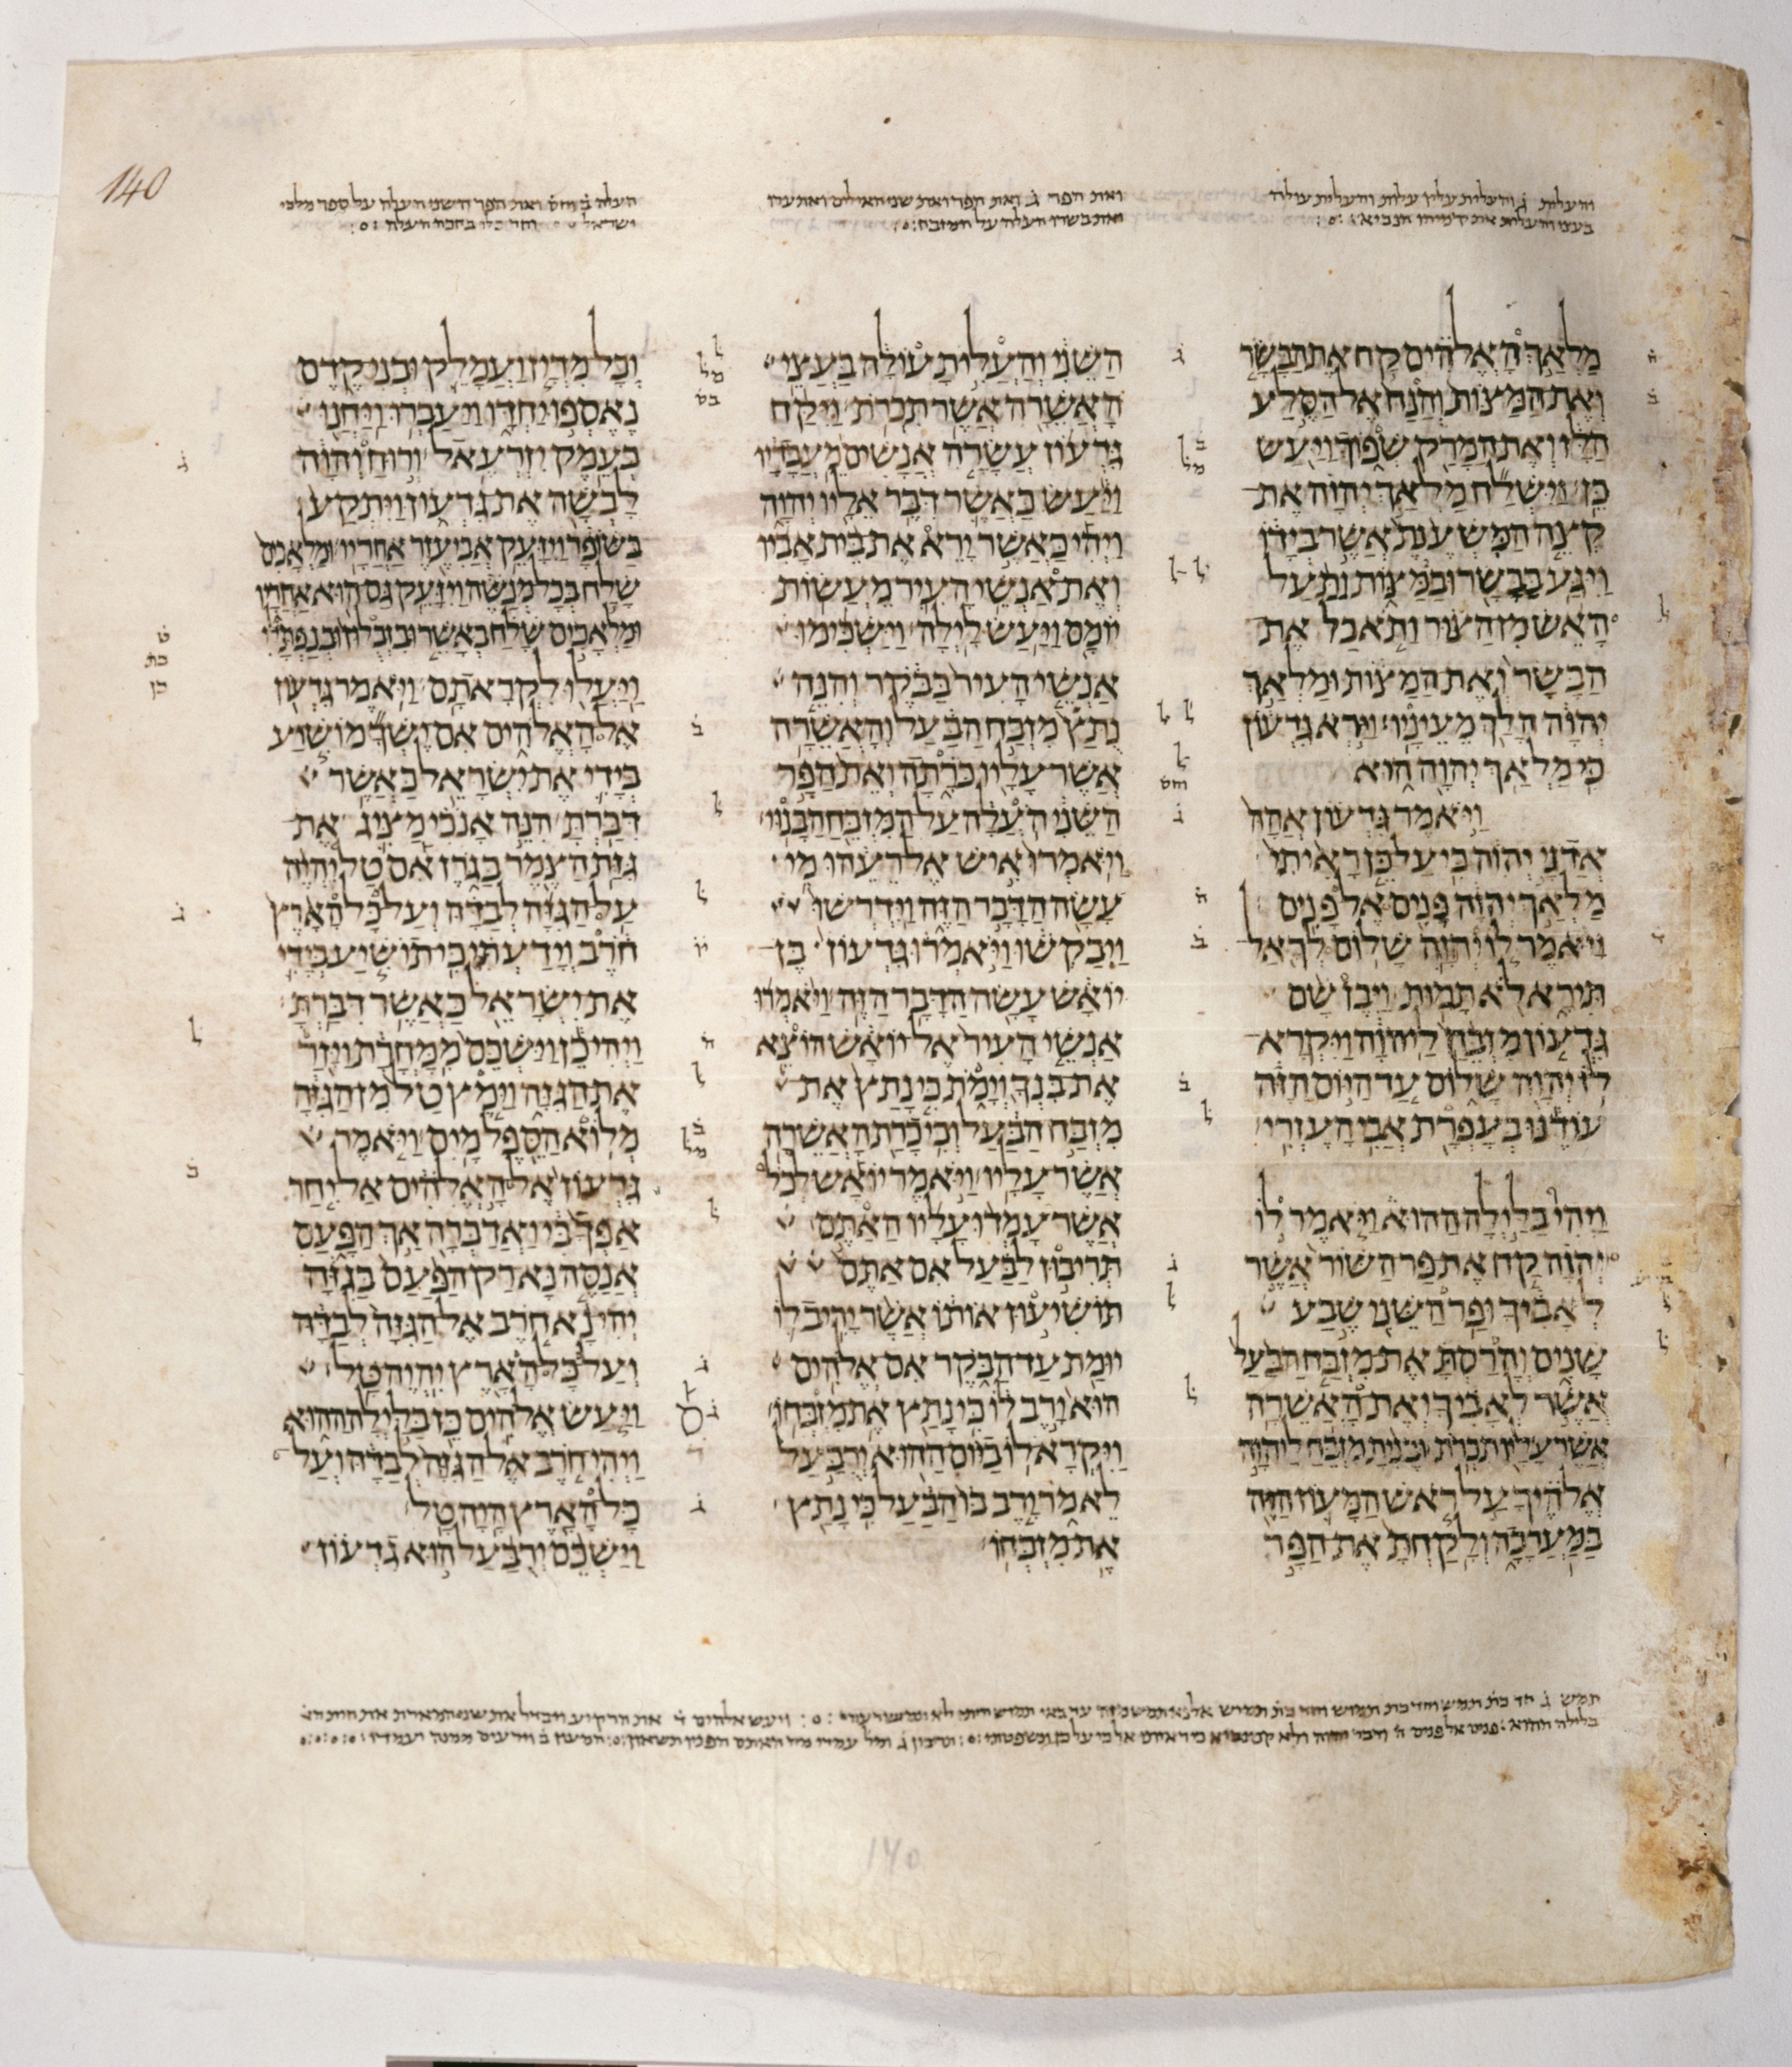 140
והעלית ג והעלית עליו עלות והעלית עולה
בעצי והעלית את ירמיהו הנביא
ואת הפר ג ואת הפר ואת שני האילים ואת ערו
ואת בשרו העלה על המזבח
העלה ב וחס ואת הפר השני העלה על ספר מלכי
ישראל וחד כלו בחכה העלה
מלאך האלהים קח את הבשר
ואת המצות והנח אל הסלע
הלז ואת המרק שפוך ויעש
כן׃ וישלח מלאך יהוה את
קצה המשענת אשר בידו
ויגע בבשר ובמצות ותעל
האש מן הצור ותאכל את
הבשר ואת המצות ומלאך
יהוה הלך מעיניו׃ וירא גדעון
כי מלאך יהוה הוא
ויאמר גדעון אהה
אדני יהוה כי על כן ראיתי
מלאך יהוה פנים אל פנים׃
ויאמר לו יהוה שלום לך אל
תירא לא תמות׃ ויבן שם
גדעון מזבח ליהוה ויקרא
לו יהוה שלום עד היום הזה
עודנו בעפרת אבי העזרי׃
ויהי בלילה ההוא ויאמר לו
יהוה קח את פר השור אשר
לאביך ופר השני שבע
שנים והרסת את מזבח הבעל
אשר לאביך ואת האשרה
אשר עליו תכרת׃ ובנית מזבח ליהוה
אלהיך על ראש המעוז הזה
במערכה ולקחת את הפר
השני והעלית עולה בעצי
האשרה אשר תכרת׃ ויקח
גדעון עשרה אנשים מעבדיו
ויעש כאשר דבר אליו יהוה
ויהי כאשר ירא את בית אביו
ואת אנשי העיר מעשות
יומם ויעש לילה׃ וישכימו
אנשי העיר בבקר והנה
נתץ מזבח הבעל והאשרה
אשר עליו כרתה ואת הפר
השני העלה על המזבח הבנוי׃
ויאמרו איש אל רעהו מי
עשה הדבר הזה וידרשו
ויבקשו ויאמרו גדעון בן
יואש עשה הדבר הזה׃ ויאמרו
אנשי העיר אל יואש הוצא
את בנך וימת כי נתץ את
מזבח הבעל וכי כרת האשרה
אשר עליו׃ ויאמר יואש לכל
אשר עמדו עליו האתם
תריבון לבעל אם אתם
תושיעון אותו אשר יריב לו
יומת עד הבקר אם אלהים
הוא ירב לו כי נתץ את מזבחו׃
ויקרא לו ביום ההוא ירבעל
לאמר ירב בו הבעל כי נתץ
את מזבחו׃
וכל מדין ועמלק ובני קדם
נאספו יחדו ויעברו ויחנו
בעמק יזרעאל׃ ורוח יהוה
לבשה את גדעון ויתקע
בשופר ויזעק אביעזר אחריו׃ ומלאכים
שלח בכל מנשה ויזעק גם הוא אחריו
ומלאכים שלח באשר ובזבלון ובנפתלי
ויעלו לקראתם׃ ויאמר גדעון
אל האלהים אם ישך מושיע
בידי את ישראל כאשר
דברת׃ הנה אנכי מציג את
גזת הצמר בגרן אם טל יהיה
על הגזה לבדה ועל כל הארץ
חרב וידעתי כי תושיע בידי
את ישראל כאשר דברת׃
ויהי כן וישכם ממחרת ויזר
את הגזה וימץ טל מן הגזה
מלוא הספל מים׃ ויאמר
גדעון אל האלהים אל יחר
אפך בי ואדברה אך הפעם
אנסה נא רק הפעם בגזה
יהי נא חרב אל הגזה לבדה
ועל כל הארץ יהיה טל׃
ויעש אלהים כן בלילה ההוא
ויהי חרב אל הגזה לבדה ועל
כל הארץ היה טל׃
וישכם ירבעל הוא גדעון
140